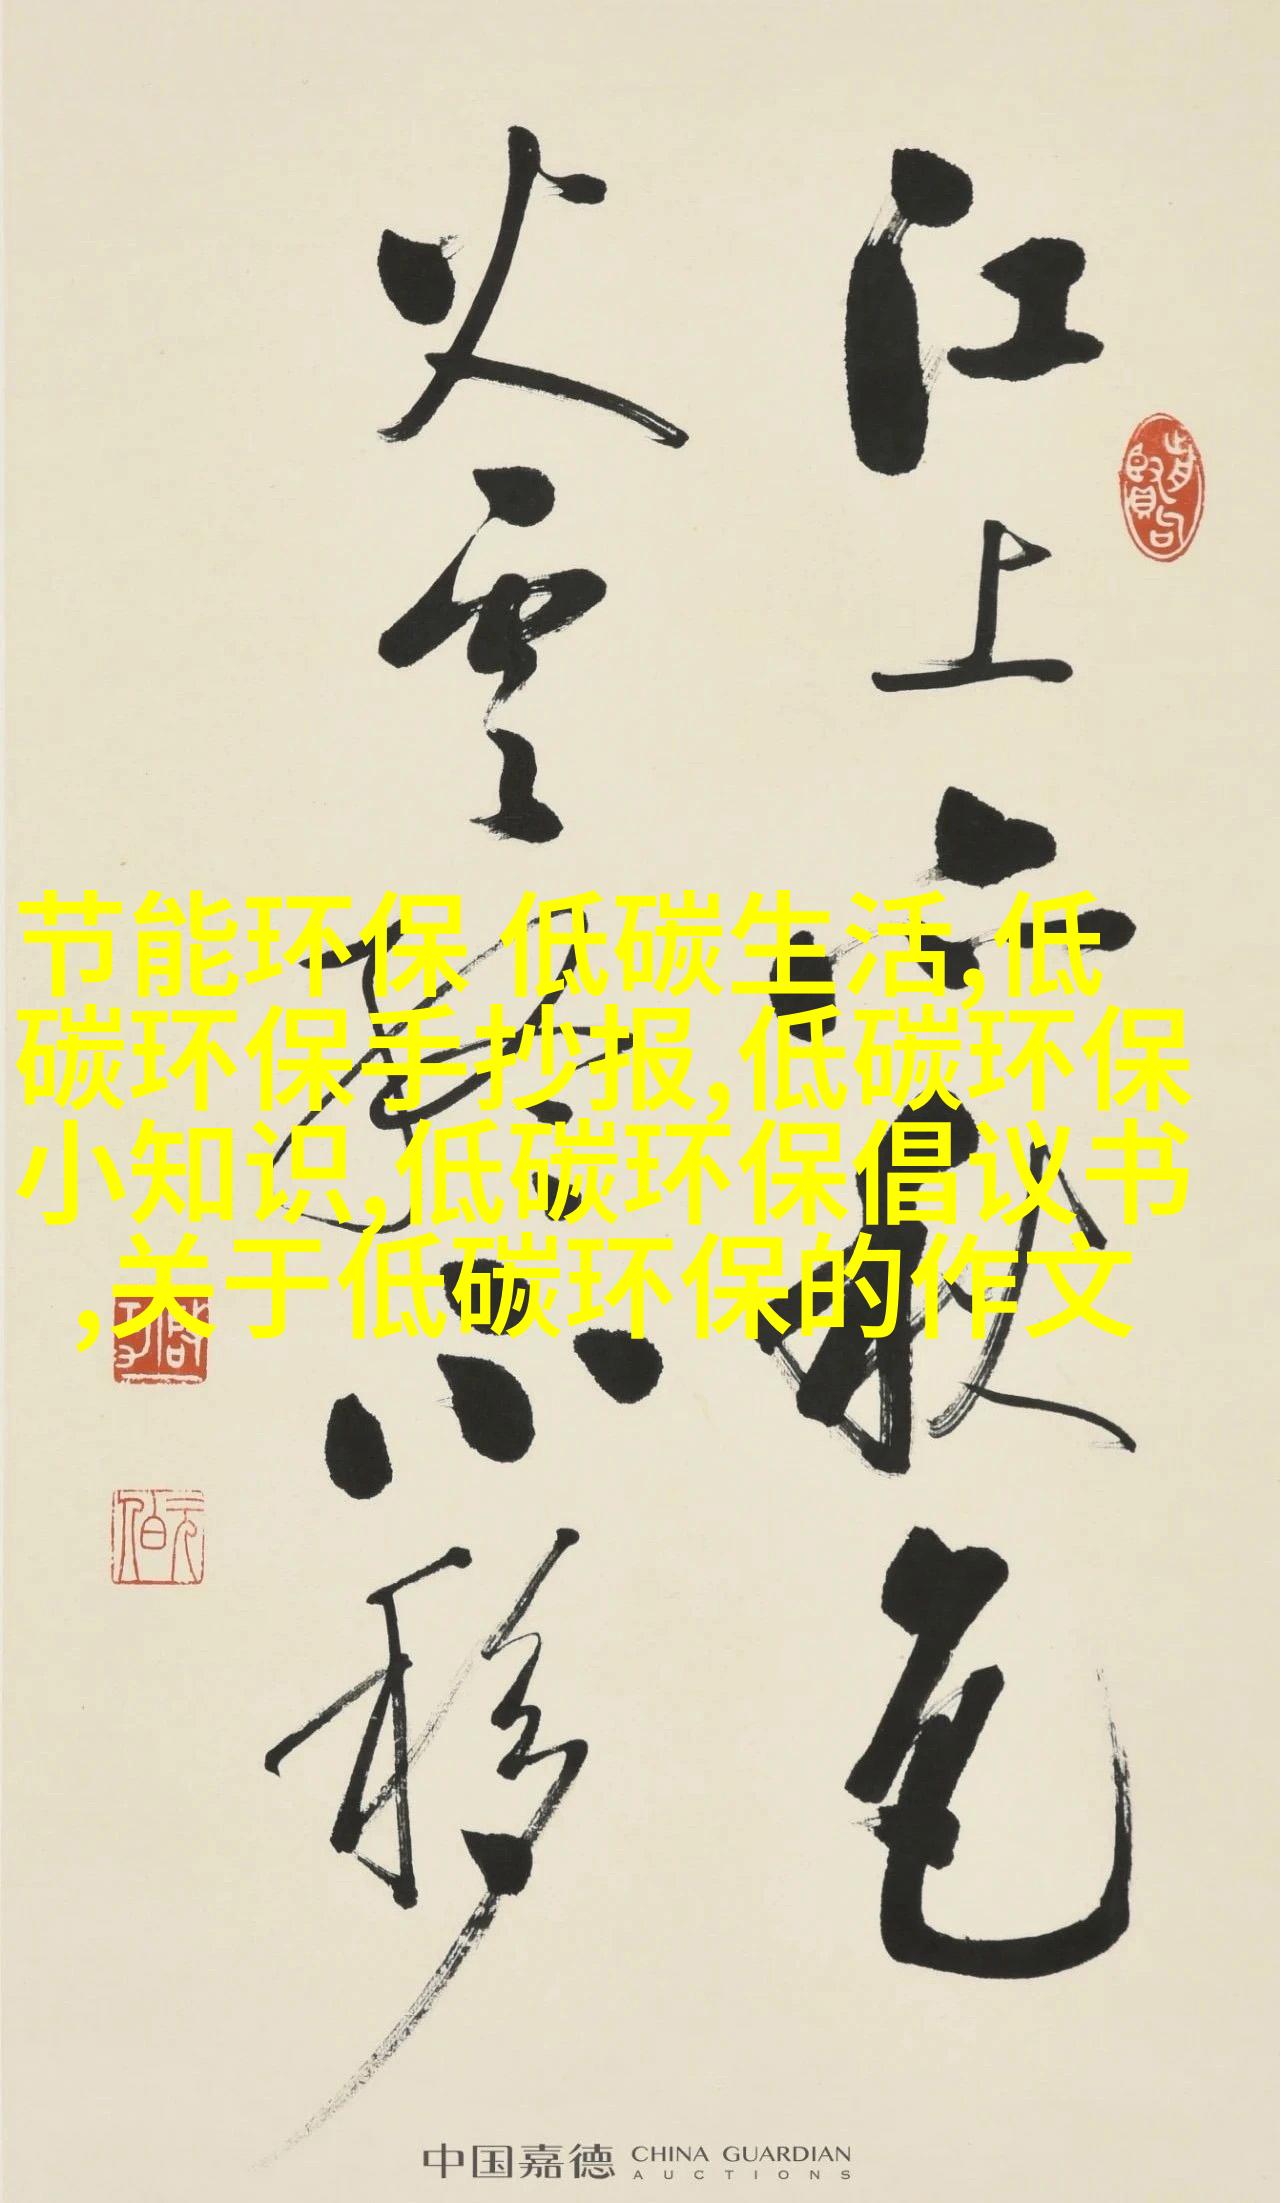 江上亦秋色
火雲終不移
节能环保 低碳生活,低
碳环保手抄报,低碳环保
小知识,低碳环保倡议书
,关于低碳环保的作文
啓功
元伯
中国嘉德 CHINA GUARDIAN
AUCTIONS